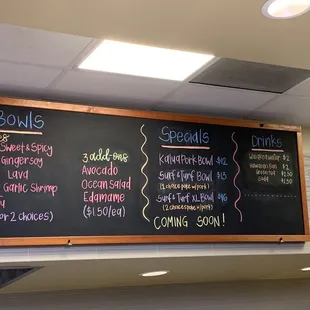 Bowls
Sweet & Spicy
Gingersoy
Lava
Garlic Shrimp
or 2 choices)
3 add-ons
Avocado
Ocean Salad
Edamame
($1.50/ea)
Specials
Kalua Pork Bowl $12
Surf & Turf Bowl $13
(1 choice poke w/ pork)
Surf & Turf XL Bowl $16
(2 choices poke w/ pork)
COMING SOON!
Drinks
$2
$2.50
$1.50